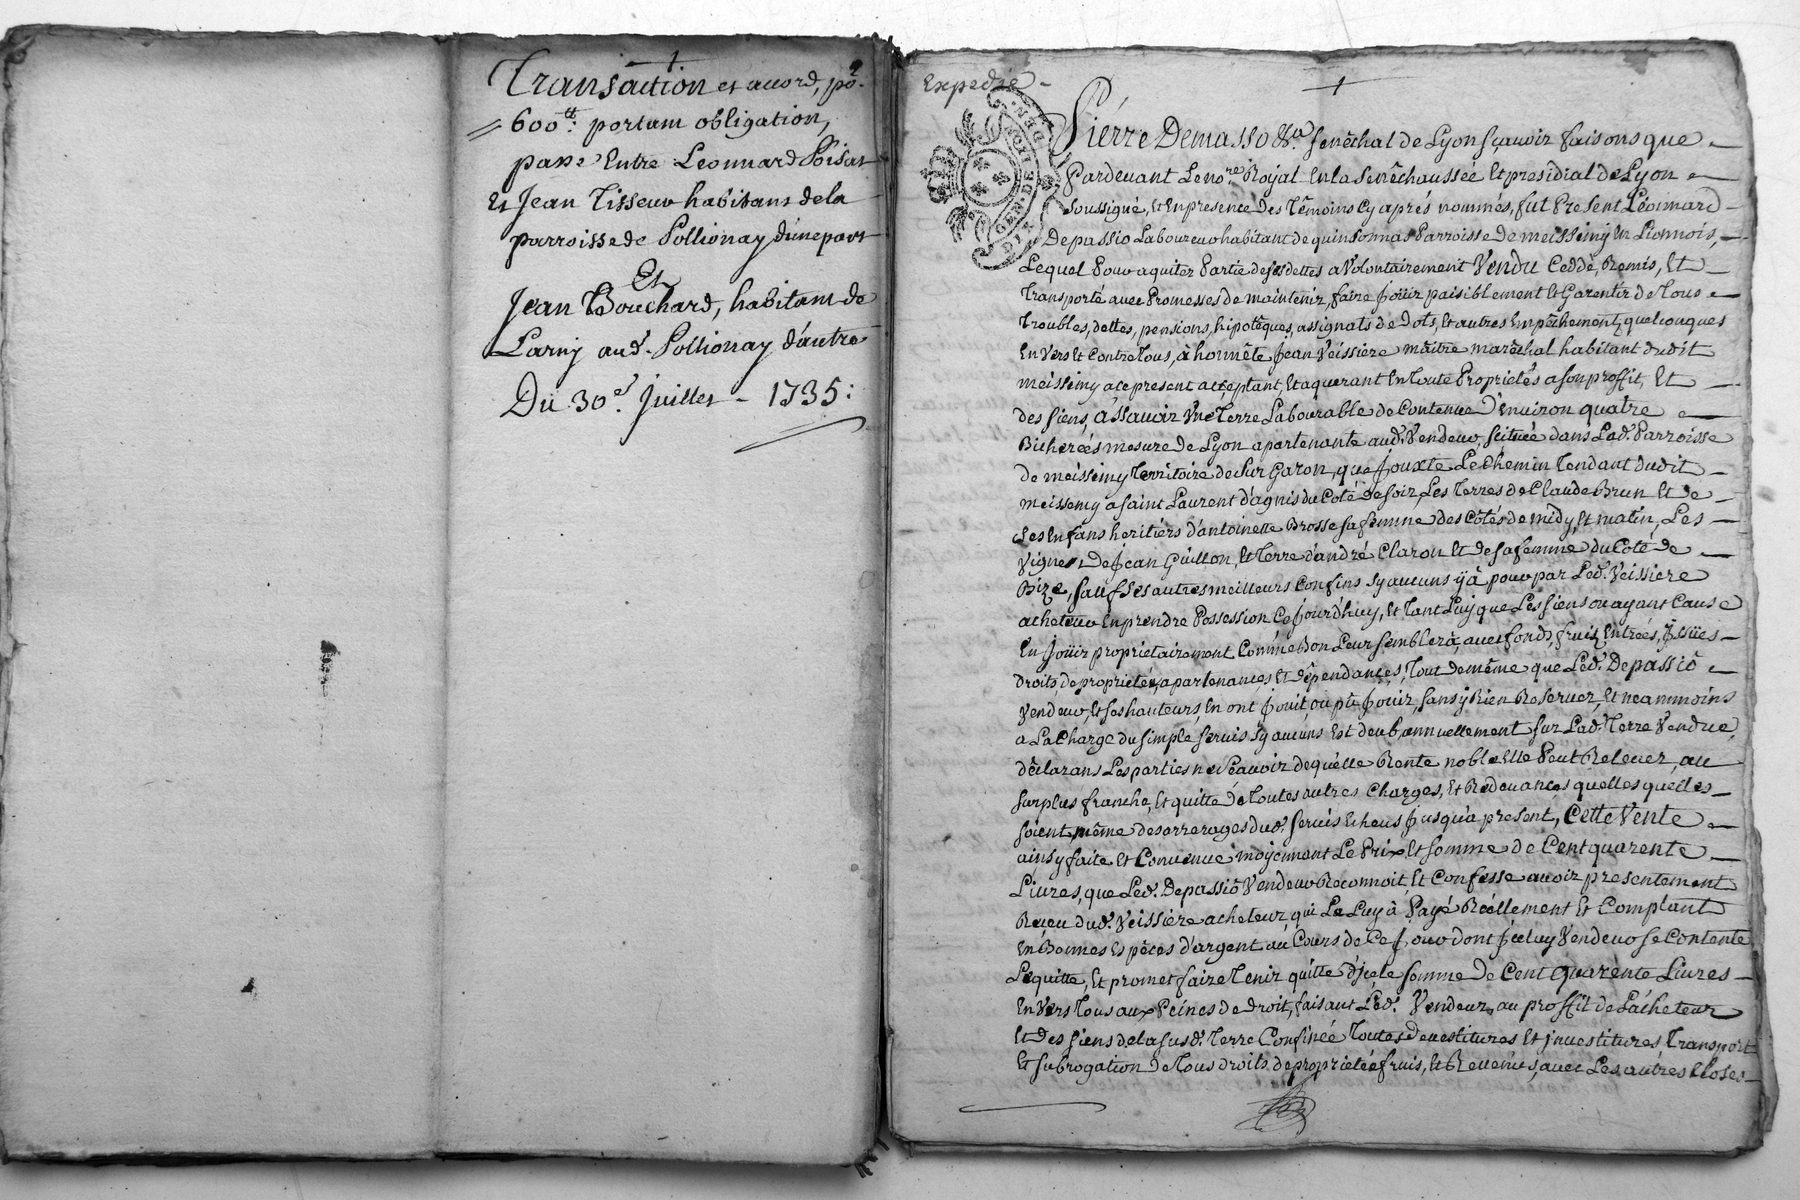 Transaction et accord, po.r
600.tt: portant obligation,
passé Entre Leonnard Poisat
Et Jean Tisseuv habitans dela
parroisse de Pollionay d'une part
Et
Jean Bouchard, habitant de
Larny aud. Pollionay d'autre
Du 30.e Juillet - 1735:
Expedié -
GEN. DE LION
Pierre Demasso &.a Senéchal de Lyon sçavoir faisons que
Pardevant Le no.re Royal En la Senêchaussée Et presidial de Lyon
soussigné, Et En presence des Têmoins Cy aprés nommés, fut Present Léonnard
Depassio Laboureuv habitant de quinsonnas Parroisse de meissimy En Lionnois,
Lequel Pouv aquiter Partie de ses dettes a Volontairement Vendu Ceddé, Remis, Et
Transporté avec Promesses de maintenir, faire Joüir paisiblement Et Garentir de Tous
Troubles, dettes, pensions, hipotêques, assignats de Dots, Et autres Empêchements quelconques
Envers Et Contre Tous, à honnête Jean Veissiere maître marêchal habitant dudit
meissimy a ce present acceptant, Et aquerant En Toute Proprietés a son proffit, Et
des siens, a'ssavoir Une Terre Labourable de Contenue d'environ quatre
Bicherées mesure de Lyon apartenante aud. Vendeuv, scituée dans Lad. Parroisse
de meissimy Territoire de sur Garon, que Jouxte Le Chemin Tendant dudit
meissimy a saint Laurent d'agnis du Coté de soir, Les Terres de Claude Brun Et de
ses Enfans heritiers d'antoinette Brosse sa femme des Côtés de midy, Et matin, Les
Vignes De Jean Guillon, Et Terre d'andré Claron Et de sa femme du Coté de
Bize, sauf ses autres meilleurs Confins sy aucuns y a pouv par Led. Veissiere
acheteuv En prendre Possession Ce Jourd'huy, Et Tant Luy que Les siens ou ayant Cause
En Joüir proprietairement Comme Bon Leur semblera, avec fonds, fruis, Entrées, Issües
droits de proprietés, apartenances Et dêpendances, Tout de même que Led. Depassiô
Vendeuv, Et ses hauteurs, En ont Joüit, ou pû Joüir, sans y Rien Reserver, Et neammoins
a La Charge du simple servis sy aucuns Est deub, annuellement sur Lad. Terre Vendue,
déclarans Les parties ne sçavoir de quelle Rente noble Elle Peut Relever, au
surplus franche, Et quitte de Toutes autres Charges, Et Redevances quelles quelles
soient, même des arrerages dud. servis Echeus Jusqu'a present, Cette Vente
ainsy faite Et Convenue moyennant Le Prix Et somme de Cent quarente
Livres, que Led. Depassiô Vendeuv Reconnoit, Et Confesse avoir presentement
Receu dud. Veissiere acheteur qui Le Luy à Payé Réellement Et Comptant
En Bonnes Espêces d'argent au Cours de Ce Jouv dont Iceluy Vendeuv se Contente
L'equitte, Et promet faire Tenir quitte d'icele somme de Cent Quarente Livres
Envers Tous aux Peines de Droit, faisant Led. Vendeur, au proffit de L'acheteur
Et des siens de la susd. Terre Confinée Toutes Devestitures Et Jnvestitures Transport
Et subrogation de Tous droits de proprietée fruis, Et Revenus, avec Les autres Closes